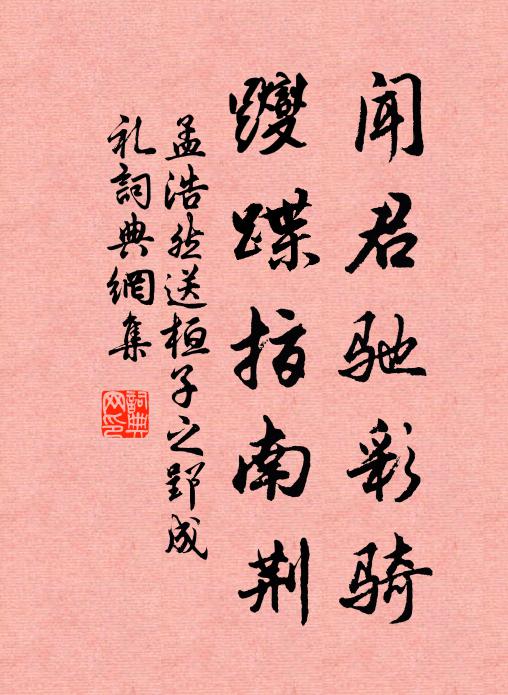 闻君驰彩骑
躞蹀指南荆
孟浩然送桓子之郢成
礼詞典網集
詞典网印